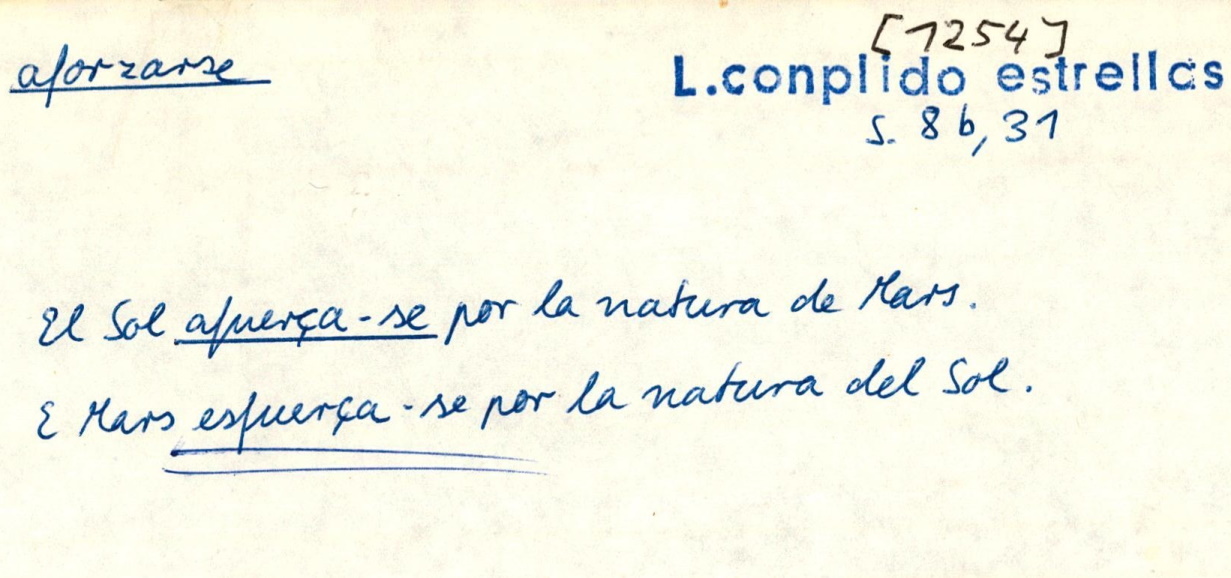 aforzarse
[1254]
L.conplido estrellas
S. 8 b, 31
El Sol afuerça-se por la natura de Mars.
E Mars esfuerça-se por la natura del Sol.